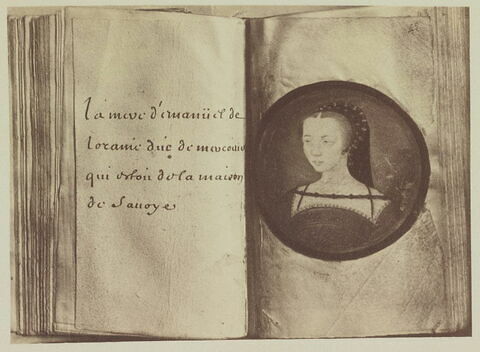 la mere d'emanüel de
loraine duc de mercoeur
qui estoit de la maison
de Sauoye